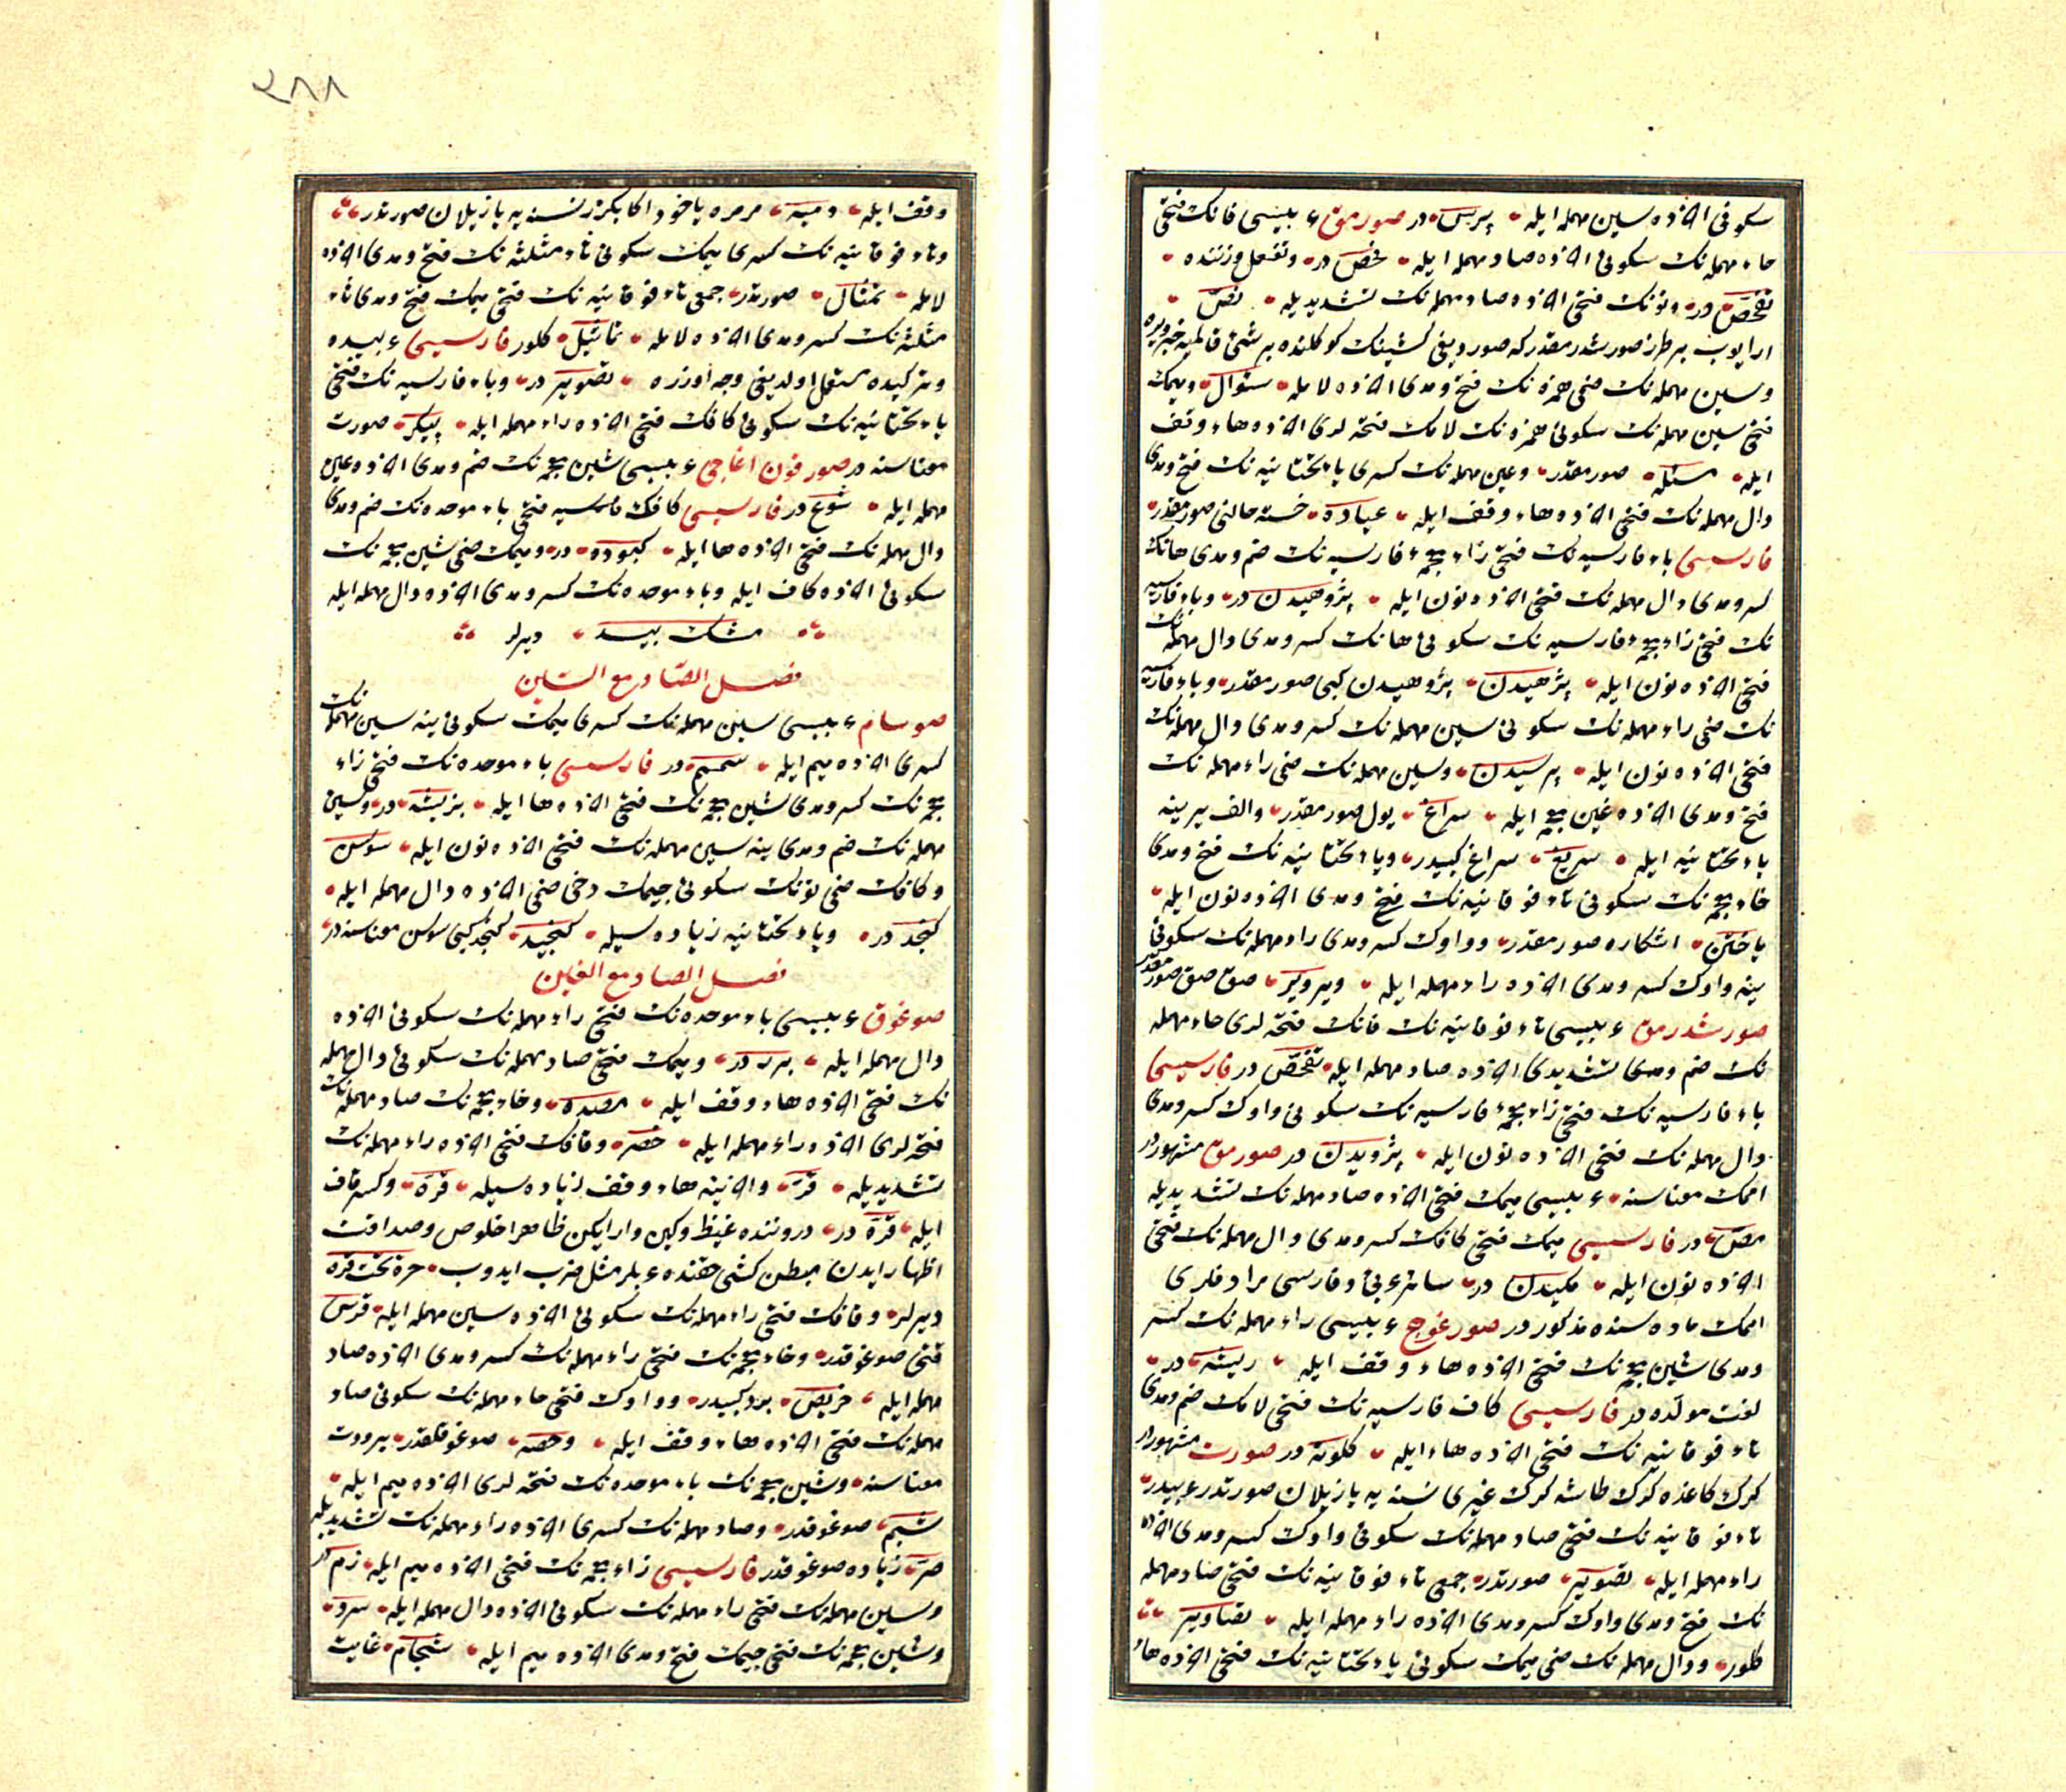 سكونی اخرنده سین مهمله ایله پرس در صورمق عربیسی فانك فتحی
حاء مهمله نك سكونی اخرنده صاد مهمله ایله فحص در وتفعل وزننده
تفحص در ونونك فتحی اخرنده صاد مهمله نك تشدیدیله نص
ارایوب بر طرز صورشدرمقدر كه صوردیغی كشینك كوكلنده بر شیء قالمیه خبر ویره
وسین مهمله نك ضمی همزه نك فتح ومدی اخرنده لامله سئوال ومیمك
فتحی سین مهمله نك سكونی همزه نك لامك فتحه لری اخرنده هاء وقف
ایله مسئله صورمقدر وعین مهمله نك كسری یاء تحتانیه نك فتح ومدی
دال مهمله نك فتحی اخرنده هاء وقف ایله عیاده خسته حالنی صورمقدر
فارسیسی باء فارسیه نك فتحی زاء معجمهٔ فارسیه نك ضم ومدی هانك
كسر ومدی دال مهمله نك فتحی اخرنده نون ایله پژوهیدن در وباء فارسیه
نك فتحی زاء معجمهٔ فارسیه نك سكونی هانك كسر ومدی دال مهمله نك
فتحی اخرنده نون ایله پژهیدن پژوهیدن كبی صورمقدر وباء فارسیه
نك ضمی راء مهمله نك سكونی سین مهمله نك كسر ومدی دال مهمله نك
فتحی اخرنده نون ایله پرسیدن وسین مهمله نك ضمی راء مهمله نك
فتح ومدی اخرنده غین معجمه ایله سراغ یول صورمقدر والف یرینه
یاء تحتانیه ایله سریغ سراغ كبیدر ویاء تحتانیه نك فتح ومدی
خاء معجمه نك سكونی تاء فوقانیه نك فتح ومدی اخرنده نون ایله
یاختن اشكاره صورمقدر وواوك كسر ومدی راء مهمله نك سكونی
ینه واوك كسر ومدی اخرنده راء مهمله ایله ویرویر صق صق صورمقدر
صورشدرمق عربیسی تاء فوقانیه نك فانك فتحه لری حاء مهمله
نك ضم ومدی تشدیدی اخرنده صاد مهمله ایله تفحص در فارسیسی
باء فارسیه نك فتحی زاء معجمهٔ فارسیه نك سكونی واوك كسر ومدی
دال مهمله نك فتحی اخرنده نون ایله پژویدن در صورمق مشهوردر
امك معناسنه عربیسی میمك فتحی اخرنده صاد مهمله نك تشدیدیله
مص در فارسیسی میمك فتحی كافك كسر ومدی دال مهمله نك فتحی
اخرنده نون ایله مكیدن در سائر عربی وفارسی مرادفلری
امك ماده سنده مذكوردر صورغوج عربیسی راء مهمله نك كسر
ومدی شین معجمه نك فتحی اخرنده هاء وقف ایله ریشه در
لغت مولده در فارسیسی كاف فارسیه نك فتحی لامك ضم ومدی
تاء فوقانیه نك فتحی اخرنده هاء ایله كلوته در صورت مشهوردر
كرك كاغذه كرك طاشه كرك غیری نسنه یه یازیلان صورتدر عربیدر
تاء فوقانیه نك فتحی صاد مهمله نك سكونی واوك كسر ومدی اخرنده
راء مهمله ایله تصویر صورتدر جمعی تاء فوقانیه نك فتحی صاد مهمله
نك فتح ومدی واوك كسر ومدی اخرنده راء مهمله ایله تصاویر
كلور ودال مهمله نك ضمی میمك سكونی یاء تحتانیه نك فتحی اخرنده هاء
٢٨٨
وقف ایله دمیه مرمره یاخود اكا بكزر نسنه یه یازیلان صورتدر
وتاء فوقانیه نك كسری میمك سكونی ثاء مثلثه نك فتح ومدی اخرنده
لامله تمثال صورتدر جمعی تاء فوقانیه نك فتحی میمك فتح ومدی ثاء
مثلثه نك كسر ومدی اخرنده لامله تماثیل كلور فارسیسی عربیده
وتركیده مستعمل اولدیغی وجه اوزره تصویر در وباء فارسیه نك فتحی
یاء تحتانیه نك سكونی كافك فتحی اخرنده راء مهمله ایله پیكر صورت
معناسنه در صورقون اغاجی عربیسی شین معجمه نك ضم ومدی اخرنده عین
مهمله ایله شوع در فارسیسی كافك فارسیه فتحی باء موحده نك ضم ومدی
دال مهمله نك فتحی اخرنده ها ایله كبوده در ومیمك ضمی شین معجمه نك
سكونی اخرنده كاف ایله وباء موحده نك كسر ومدی اخرنده دال مهمله ایله
مشك بید دیرلر
فصل الصاد مع السین
صوسام عربیسی سین مهمله نك كسری میمك سكونی ینه سین مهمله نك
كسری اخرنده میم ایله سمسم در فارسیسی باء موحده نك فتحی زاء
معجمه نك كسر ومدی شین معجمه نك فتحی اخرنده ها ایله بزیشه در وسین
مهمله نك ضم ومدی ینه سین مهمله نك فتحی اخرنده نون ایله سوسن
وكافك ضمی نونك سكونی جیمك دخی ضمی اخرنده دال مهمله ایله
كنجد در ویاء تحتانیه زیاده سیله كنجید كنجد كبی سوسن معناسنه در
فصل الصاد مع الغین
صوغوق عربیسی باء موحده نك فتحی راء مهمله نك سكونی اخرنده
دال مهمله ایله برد در ومیمك فتحی صاد مهمله نك سكونی دال مهمله
نك فتحی اخرنده هاء وقف ایله مصده وخاء معجمه نك صاد مهمله نك
فتحه لری اخرنده راء مهمله ایله خصر وقافك فتحی اخرنده راء مهمله نك
تشدیدیله قر واخرینه هاء وقف زیاده سیله قرة وكسر قاف
ایله قرة در دروننده غیظ وكین وار ایكن ظاهرا خلوص وصداقت
اظهار ایدن مبطن كشی حقنده عربلر مثل ضرب ایدوب حرة تحت قرة
دیرلر وقافك فتحی راء مهمله نك سكونی اخرنده سین مهمله ایله قرس
قتی صوغوقدر وخاء معجمه نك فتحی راء مهمله نك كسر ومدی اخرنده صاد
مهمله ایله خریص برد كبیدر وواوك فتحی حاء مهمله نك سكونی صاد
مهمله نك فتحی اخرنده هاء وقف ایله وحصه صوغوقلقدر برودت
معناسنه وشین معجمه نك باء موحده نك فتحه لری اخرنده میم ایله
شبم صوغوقدر وصاد مهمله نك كسری اخرنده راء مهمله نك تشدیدیله
صر زیاده صوغوقدر فارسیسی زاء معجمه نك فتحی اخرنده میم ایله زم در
وسین مهمله نك فتحی راء مهمله نك سكونی اخرنده دال مهمله ایله سرد
وشین معجمه نك فتحی جیمك فتح ومدی اخرنده میم ایله شجام غایت